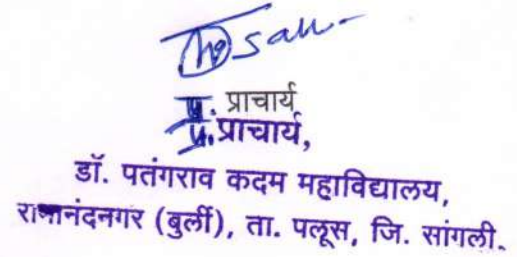 प्र. प्राचार्य
प्र. प्राचार्य,
डॉ. पतंगराव कदम महाविद्यालय,
रामानंदनगर (बुर्ली), ता. पलूस, जि. सांगली.